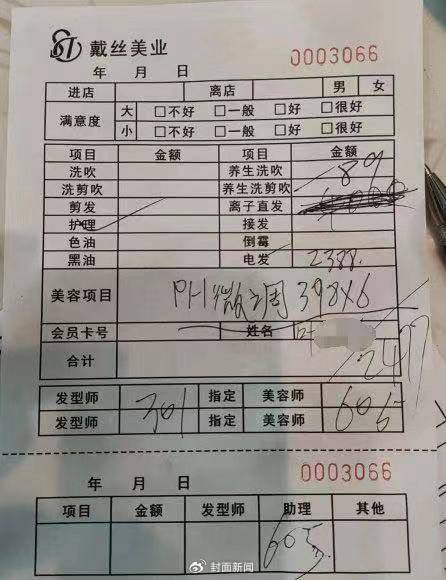 戴丝美业
0003066
年 月 日
进店 离店 男 女
满意度 大 □不好 □一般 □好 □很好
小 □不好 □一般 □好 □很好
项目 金额 项目 金额
洗吹 养生洗吹
洗剪吹 养生洗剪吹 89
剪发 离子直发
护理 接发
色油 倒霉
黑油 电发 2388.
美容项目 PH微调 398X6
会员卡号 姓名 叶
合计 2477
发型师 301 指定 美容师 605
发型师 指定 美容师
0003066
年 月 日
项目 金额 发型师 助理 其他
605
封面新闻